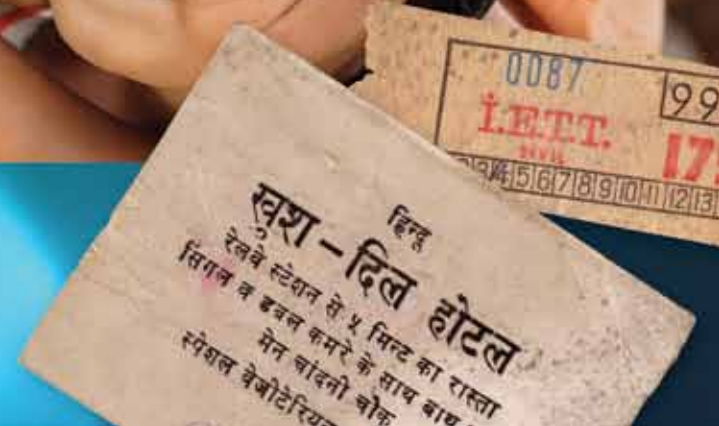 0087 99
İ.E.T.T.
SİVİL 17
3 4 5 6 7 8 9 10 11 12 13
हिन्दू
खुश - दिल होटल
रेलवे स्टेशन से ५ मिन्ट का रास्ता
सिंगल व डबल कमरे के साथ बाथ
मेन चांदनी चौक
स्पेशल वेजीटेरियन